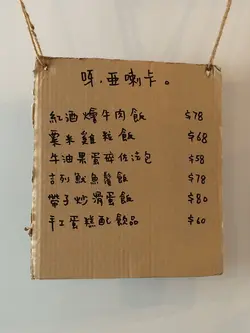 呀.亜喇卡。
紅酒燴牛肉飯 $78
粟米雞粒飯 $68
牛油果蛋碎佐法包 $58
吉列魷魚鬚飯 $78
帶子炒滑蛋飯 $80
手工蛋糕配飲品 $60